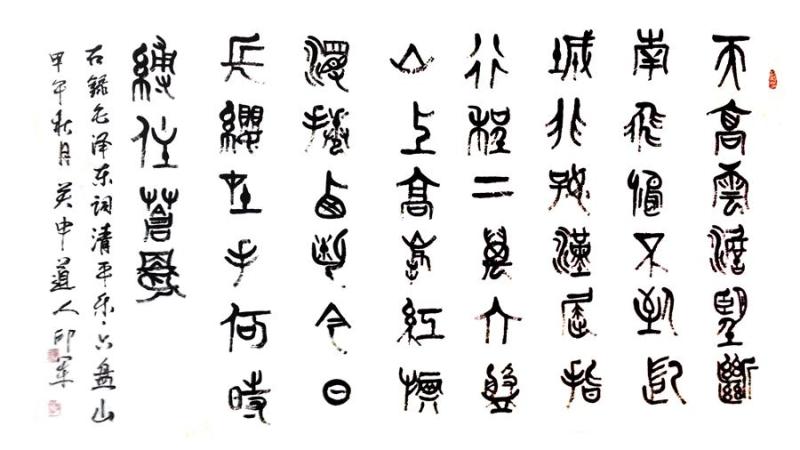 天高雲淡望斷
南飛雁不到長
城非好漢屈指
行程二萬六盤
山上高峰紅旗
漫捲西風今日
長纓在手何時
縛住蒼龍
右錄毛泽东词清平乐·六盘山
甲午秋月 道人邱军